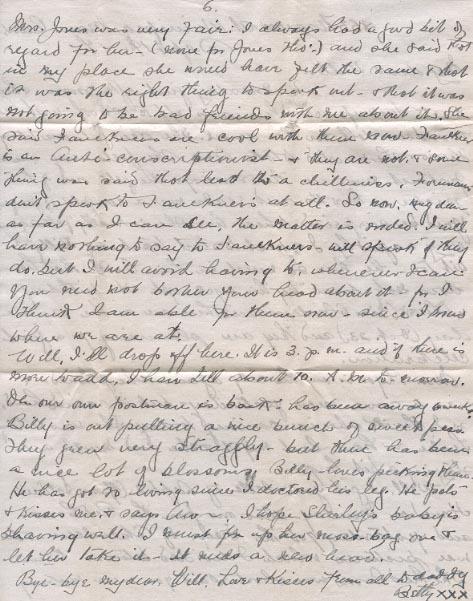 6.
Mrs. Jones was very fair. I always had a good bit of
regard for her - (none for Jones tho') and she said that
in my place she would have felt the same & that
it was the right thing to speak out - & that it was
not going to be bad friends with me about it. She
said Faulkners are cool with them now - Faulkner
is an Anti-conscriptionist - & they are not & some
thing was said that lead to a chilliness. Foreman
don't speak to Faulkners at all. So now, my dear
as far as I can see, the matter is ended. I will
have nothing to say to Faulkners - will speak if they
do, but I will avoid having to, whenever I can
You need not bother your head about it - for I
think I am able for them now - since I know
where we are at.
Well, I'll drop off here. It is 3. p.m. and if there is
more to add, I have till about 10. A.M. to-morrow.
our own postman is back. has been away
Billy is out pulling a nice bunch of sweet peas
They grew very straggly - but there has been
a nice lot of blossoms. Billy loves picking them.
He has got so loving since I doctored his leg. He pats
& kisses me, & says I hope Shirley's baby is
behaving well. I must fix up her one &
let him take it - it needs a new head.
Bye-bye my dear Will, Love & kisses from all to daddy
Betty xxx